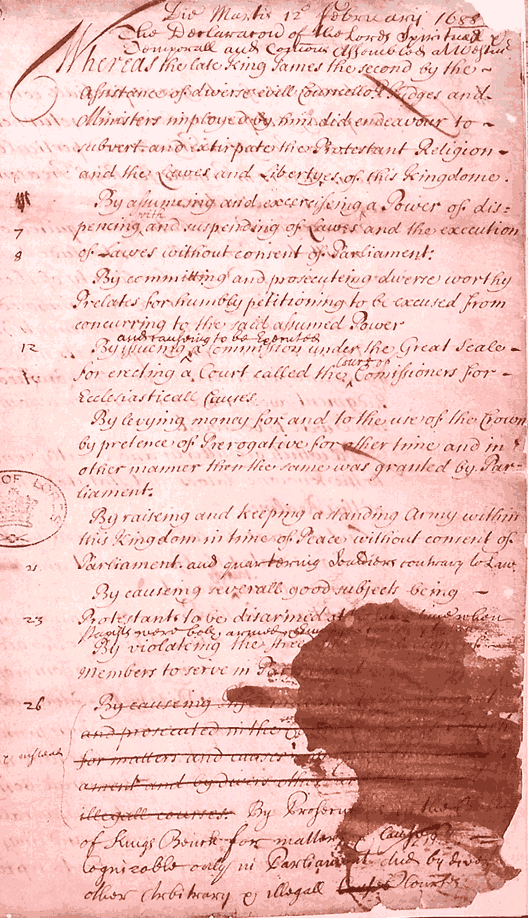 Die Martis 12° February 1688
The Declaration of the Lords Spirituall &
Temporall and Comons Assembled at Westmr
Whereas the late King James the second by the
Assistance of diverse evill Councellors Judges and
Ministers imployed by him did endeavour to
subvert and extirpate the Protestant Religion
and the Lawes and Libertyes of this Kingdome.
By assumeing and exerciseing a Power of dis-
with
7 pencing and suspending of Lawes and the execution
8 of Lawes without consent of Parliament:
By committing and prosecuteing diverse worthy
Prelates for humbly petitioning to be excused from
concurring to the said assumed Power
and causing to be Executed
12 By issueing a Commission under the Great Seale
Court of
for erecting a Court called the Comissioners for
Ecclesiasticall Causes
By levying money for and to the use of the Crown
by pretence of Prerogative for other time and in
other manner then the same was granted by Par-
liament:
By raiseing and keeping a standing Army within
this Kingdom in time of Peace without consent of
21 Parliament and quartering Souldiers contrary to Law
By causeing severall good subjects being
23 Protestants to be disarmed at when
Papists were both armed
By violating the
members to serve in
26 By causeing
and prosecuted in the
for matters and causes
ament and by divers other
illegall courses. By
of Kings Bench for matters & causes
Cognizable only in Parliament and by
other Arbitrary & illegall Courses.